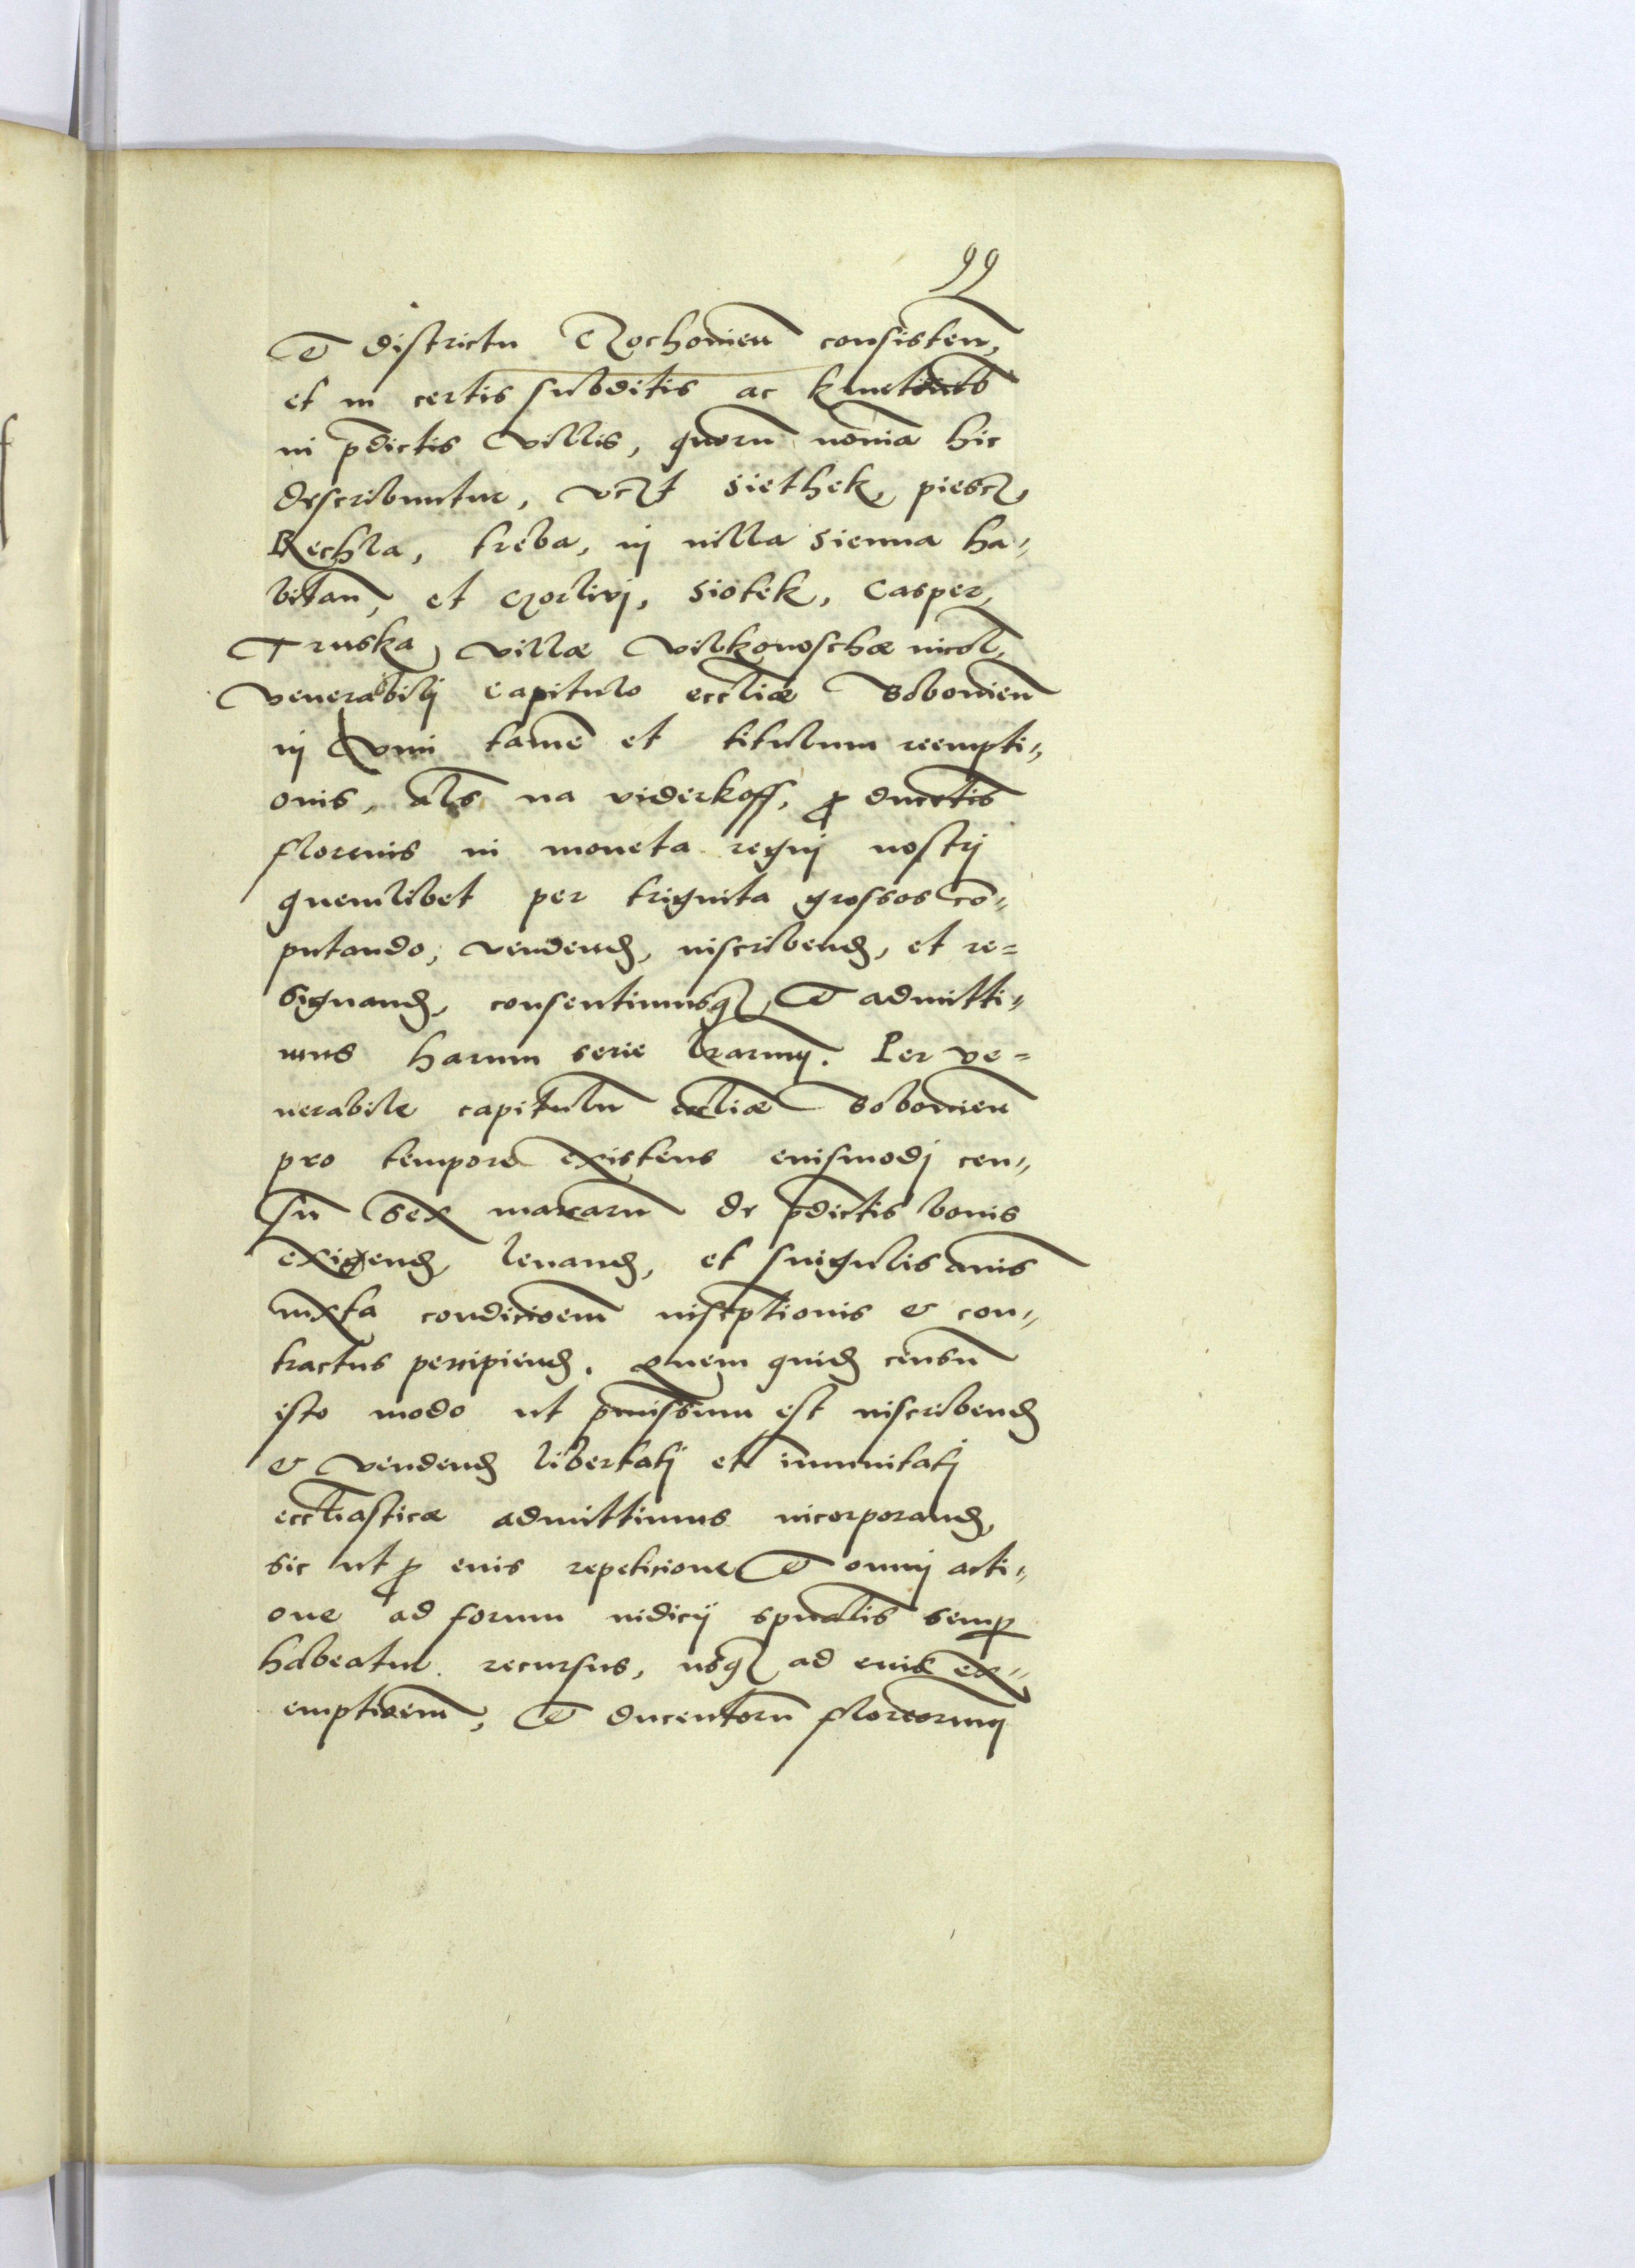 99
et districtu Czochovien consisten,
et in certis subditis ac kmetonib
in pdictis villis, quoru nomina hic
describuntur, vczt Siethek, piescz,
Rechla, treba, in villa Sienna ha„
bitan, et Czorlivj, Siotek, Casper,
Truska, villæ Vilkonoschæ incol,
venerabilij Capitulo eccliæ Bobovien
in vim tame et titulum reempti„
onis, als na viderkoff, p ducetis
florenis in moneta regnij nostrj
quemlibet per triginta grossos co„
putando, vendend, inscribend, et re=
signand, consentimusq, et admitti„
mus harum serie lrarum. Per ve=
nerabile capitulu eccliæ Bobovien
pro tempore existens eiusmodj cen„
su sex marcaru de pdictis bonis
exigend, levand, et singulis anis
iuxta condicioem inscptionis & con„
tractus percipiend. Quem quid censu
isto modo ut pmissum est inscribend
& vendend libertatj et immunitatj
eccliasticæ admittimus incorporand,
sic ut p eius repeticione et omnij acti„
one ad forum iudicij spualis semp
habeatur recursus, usq ad eius ex„
emptioem, et ducentoru florenorum